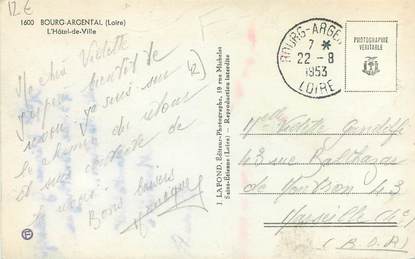 12€
1600 BOURG-ARGENTAL (Loire)
L'Hôtel-de-Ville
Ma chère Violette
j'espère bientôt te
revoir je suis sur
le chemin de retour
et suis contente de
te revoir.
Bons baisers
J. LAFOND, Éditeur-Photographe, 19 rue Michelet
Saint-Étienne (Loire) - Reproduction interdite
BOURG-ARGENTAL
7 *
22-8
1953
LOIRE
PHOTOGRAPHIE
VÉRITABLE
Violette
43 rue Balthazar
de Montron 43
Marseille
(B.D.R)